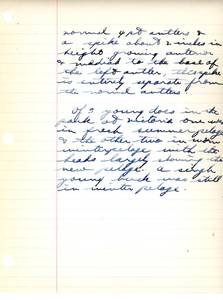 normal 4 pt antlers &
a spike about 2 inches in
height growing anterior
& medial to the base of
the left antler, the spike
is entirely separate from
the normal antlers.
Of 3 young does in the
park at Victoria one was
in fresh summer pelage
& the other two in worn
winter pelage with the
heads largely showing the
new pelage. A single
young buck was still
in winter pelage.